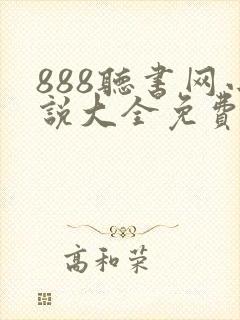 888聽書网
說大全免費
高和荣